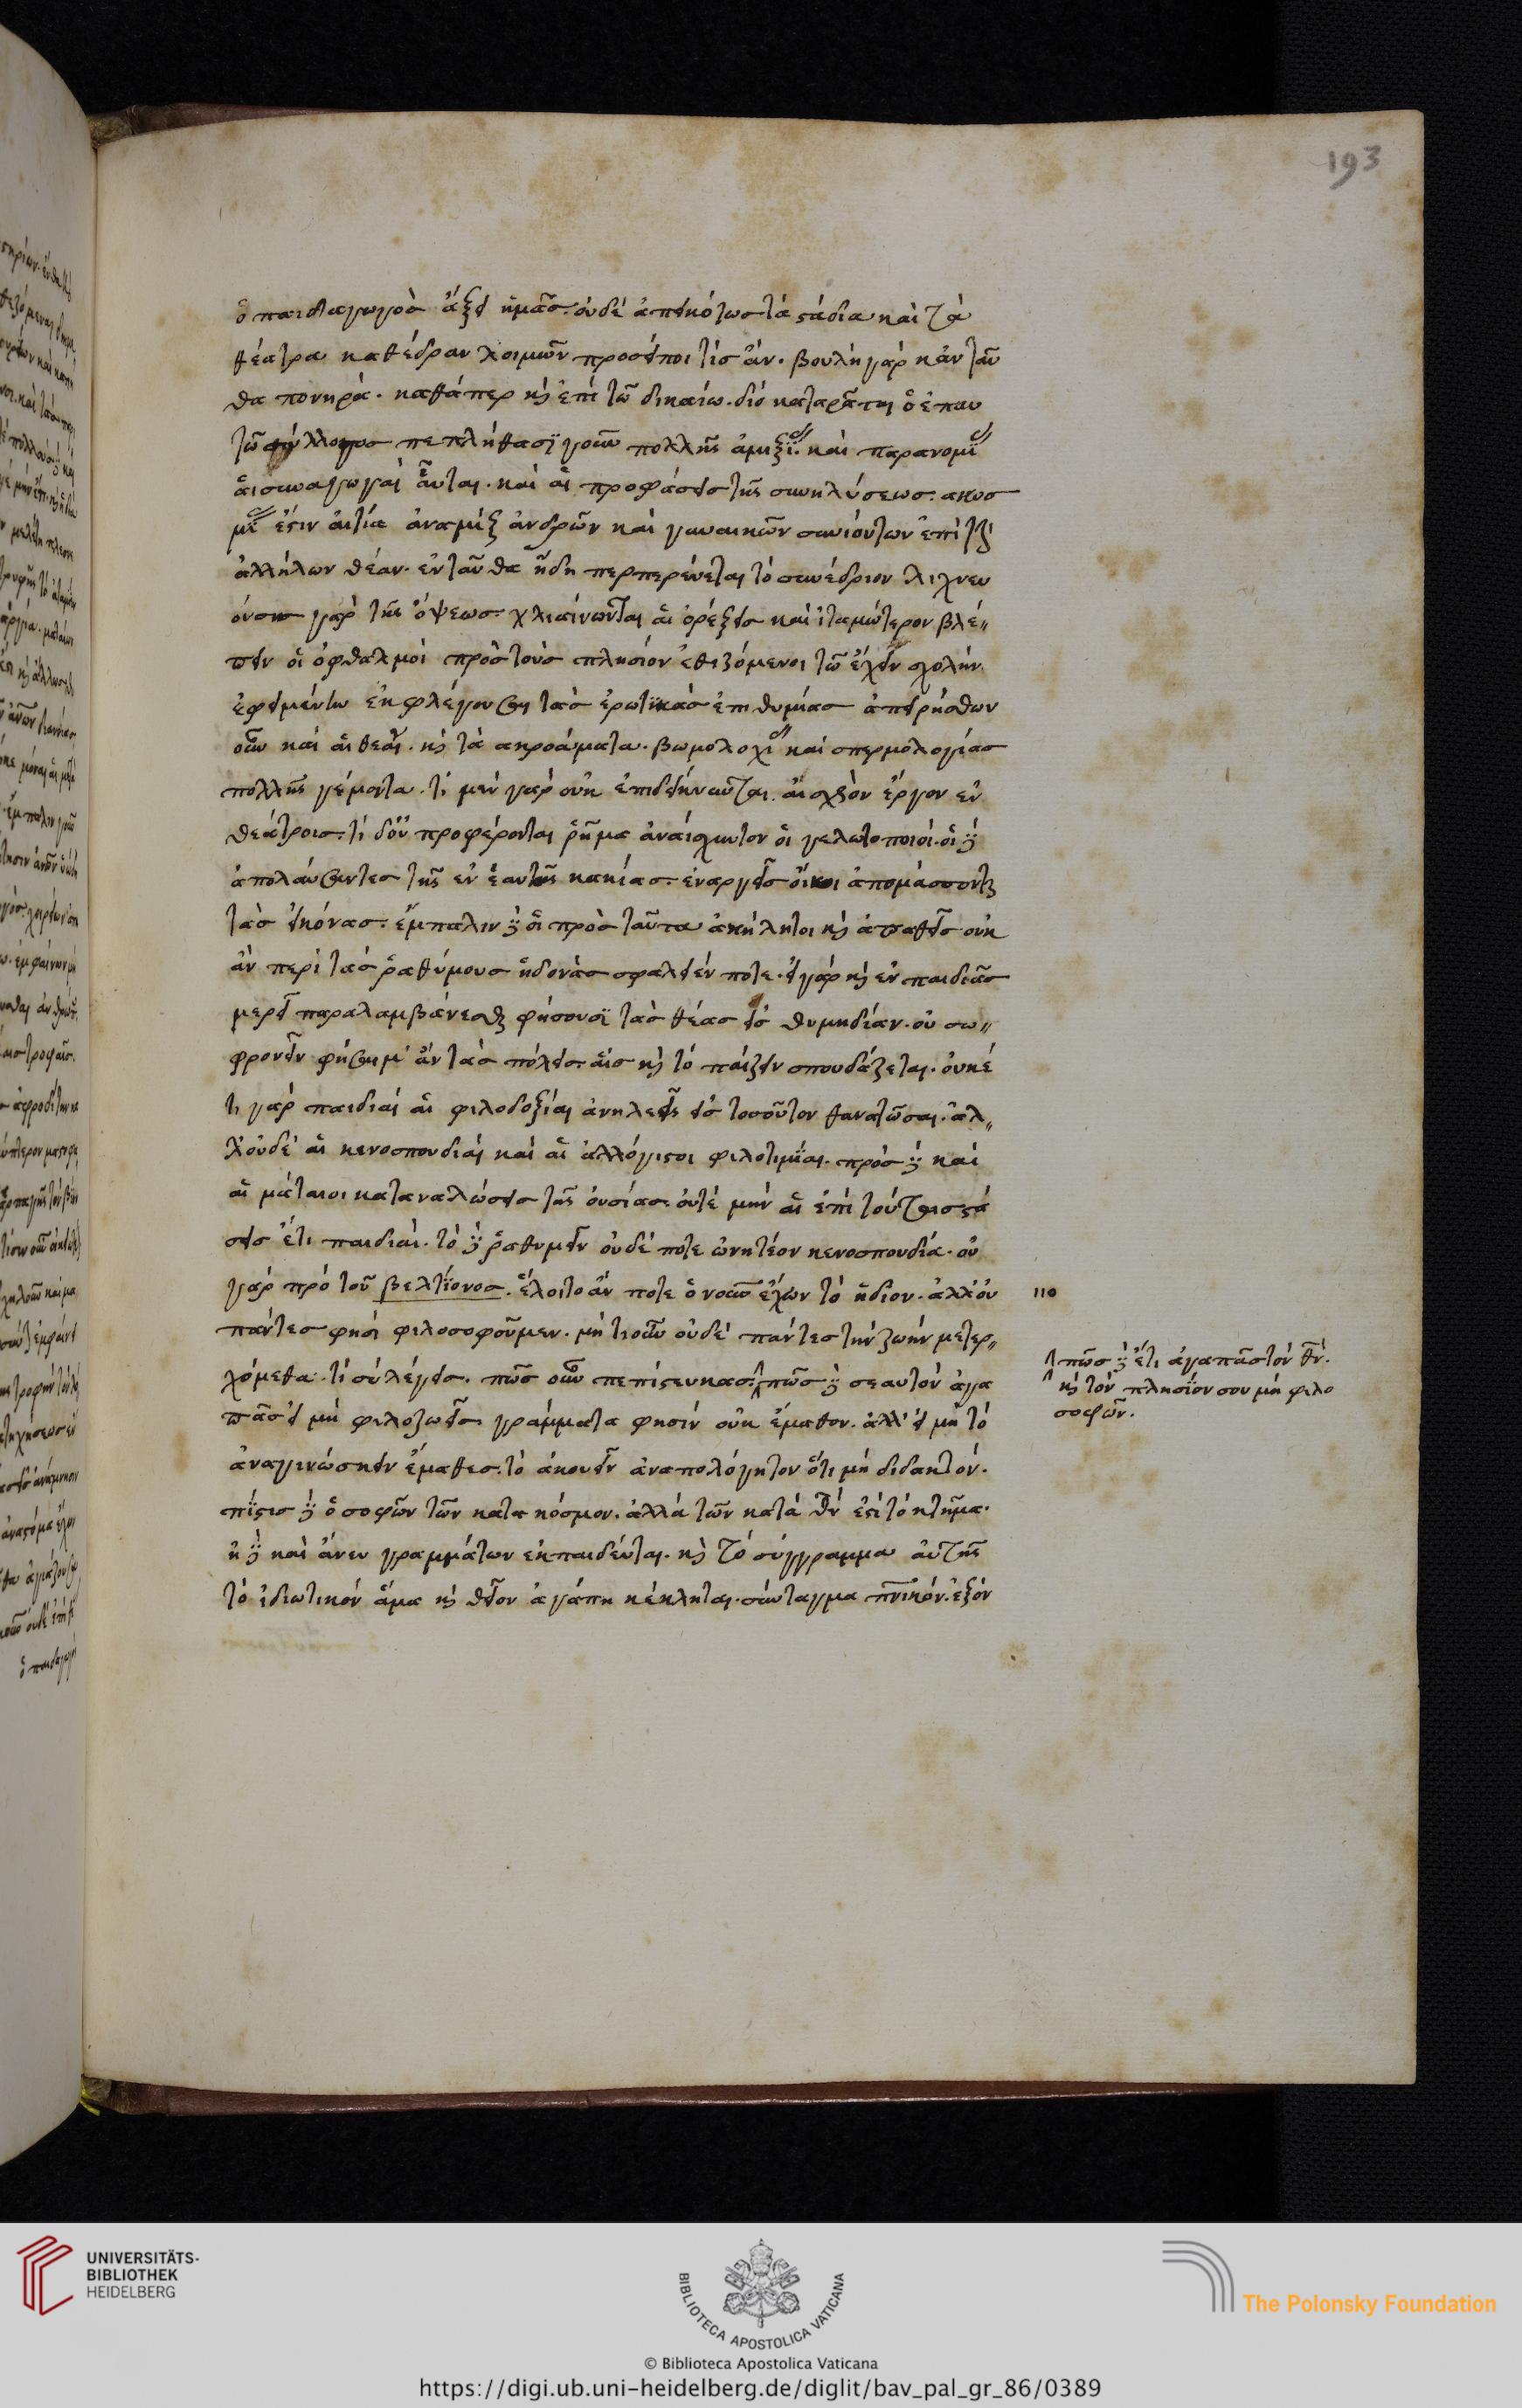 193
ὁ παιδαγωγὸσ ἄξει ἡμᾶσ. οὐδὲ ἀπεικότωσ τὰ στάδια καὶ τὰ
θέατρα καθέδραν λοιμῶν προσείποι τίσ ἄν. βουλὴ γὰρ κἀνταῦ
θα πονηρὰ. καθάπερ κὶ ἐπὶ τῶ δικαίω. διὸ καταρᾶται ὁ ἐπαυ
τῶ σύλλογοσ πεπλήθασϊ γοῦν πολλῆς ἀμιξϊασ. καὶ παρανομϊασ
αἱ συναγωγαὶ αὗται. καὶ αἱ προφάσεισ τῆς συνηλύσεωσ. ακοσ
μϊασ ἐστιν αἰτία ἀναμὶξ ἀνδρῶν καὶ γυναικῶν συνιόντων ἐπὶ τὴν
ἀλλήλων θέαν. ἐνταῦθα ἤδη περπερεύεται τὸ συνέδριον λιχνευ
ούσησ γὰρ τῆς ὄψεωσ. χλιαίνονται αἱ ὀρέξεισ καὶ ἰταμώτερον βλέ〃
πειν οἱ ὀφθαλμοὶ πρὸσ τοὺσ πλησιόν ἐθιζόμενοι τῶ ἔχειν σχολήν.
ἐφειμένην ἐκφλέγουσι τὰσ ἐρωτϊκὰσ ἐπιθυμίασ ἀπειρήσθων
οὖν καὶ αἱ θεαῖ. κὶ τὰ ακροάματα. βωμολοχϊασ καὶ σπερμολογίασ
πολλῆς γέμοντα. τί μὲν γὰρ οὐκ ἐπιδείκνυται. αἰσχρὸν ἔργον ἐν
θεάτροισ. τί δ' οὐ προφέρονται ῥῆμα ἀναίσχυντον οἱ γελωτοποιοί. οἱ δὲ
ἀπολαύσαντεσ τῆς ἐν ἑαυτοῖς κακίασ. ἐναργεῖσ οἴκοι ἀπομάσσονται
τὰσ εἰκόνασ. ἔμπαλιν δὲ οἱ πρὸσ ταῦτα ἀκήλητοι κὶ ἀπαθεῖσ. οὐκ
ἂν περὶ τὰσ ῥαθύμουσ ἡδονὰσ σφαλεῖέν ποτε. εἰ γὰρ κὶ ἐν παιδιᾶσ
μέρει παραλαμβάνεσθαι φήσουσϊ τὰσ θέασ εἰσ θυμηδίαν. οὐ σω〃
φρονεῖν φήσαιμ' ἂν τὰσ πόλεισ. αἷσ κὶ τὸ παίζειν σπουδάζεται. οὐκέ
τι γὰρ παιδιαὶ αἱ φιλοδοξίαι ἀνηλεεῖς εἰσ τοσοῦτον θανατῶσαι. ἀλ〃
λ' οὐδὲ αἱ κενοσπουδίαι καὶ αἱ ἀλλόγιστοι φιλοτιμΐαι. πρὸσ δὲ καὶ
αἱ μάταιοι καταναλώσεισ τῆς οὐσίασ. οὐτὲ μὴν αἱ ἐπὶ τούτοισ στά
σεισ ἔτι παιδιαὶ. τὸ δὲ ῥαθυμεῖν οὐδέ ποτε ὠνητέον κενοσπουδία. οὐ
γὰρ πρὸ τοῦ βελτίονοσ. ἕλοιτο ἄν ποτε ὁ νοῦν ἔχων τὸ ἥδιον. ἀλλ' οὐ
110
πάντεσ φησὶ φιλοσοφοῦμεν. μὴ τι οὖν οὐδὲ πάντεσ τὴν ζωὴν μετερ〃
χόμεθα. τί σὺ λέγεισ. πῶσ οὖν πεπίστευκασ. πῶσ δὲ σεαυτὸν ἀγα
πᾶσ εἰ μὴ φιλοζωεῖσ. γράμματα φησὶν οὐκ ἔμαθον. ἀλλ' εἰ μὴ τὸ
ἀναγινώσκειν ἔμαθεσ. τὸ ἀκούειν ἀναπολόγητον ὅτι μὴ διδακτόν.
πΐστισ δὲ ὁ σοφῶν τῶν κατα κόσμον. ἀλλὰ τῶν κατὰ θν̄ ἐστὶ τὸ κτῆμα.
ἡ δὲ καὶ ἄνευ γραμμάτων ἐκπαιδεύται. κὶ τὸ σύγγραμμα αὐτῆς
τὸ ἰδιωτικόν ἅμα κὶ θεῖον ἀγάπη κέκληται. σύνταγμα πνικόν. ἐξὸν
πῶσ δὲ ἔτι ἀγαπᾶσ τὸν θν̄.
κὶ τὸν πλησίον σου μὴ φιλο
σοφῶν.
UNIVERSITÄTS-
BIBLIOTHEK
HEIDELBERG
BIBLIOTECA APOSTOLICA VATICANA
The Polonsky Foundation
© Biblioteca Apostolica Vaticana
https://digi.ub.uni-heidelberg.de/diglit/bav_pal_gr_86/0389